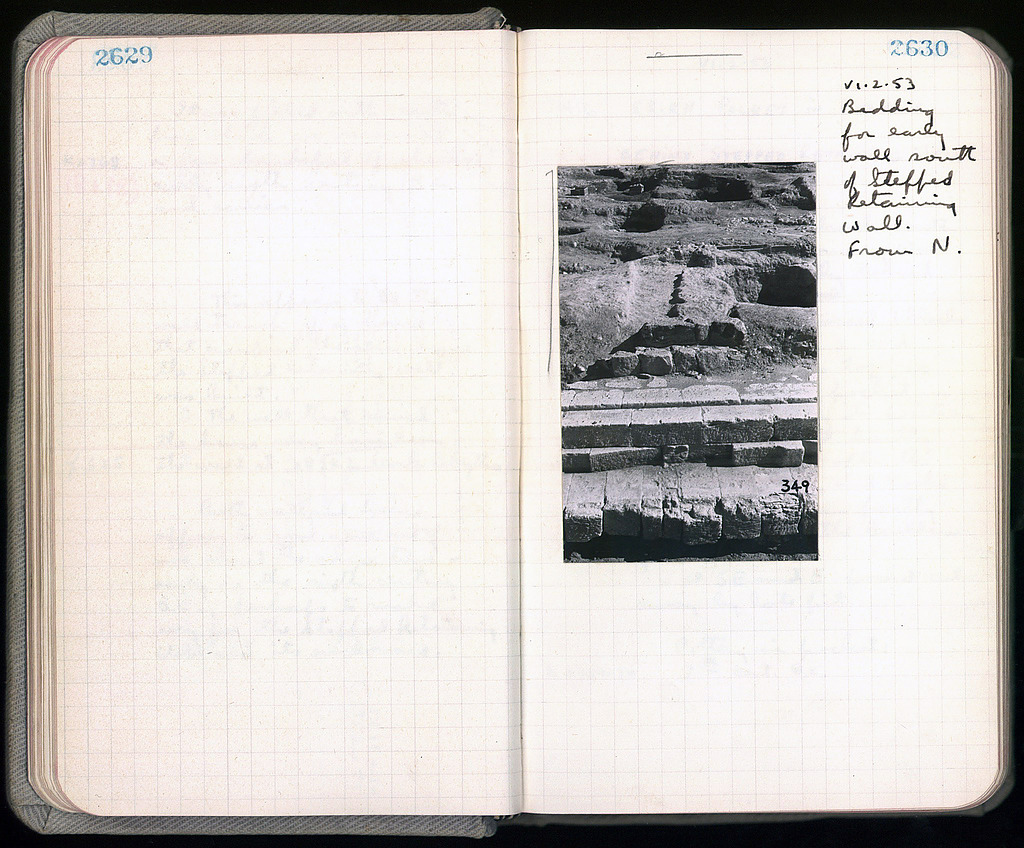 2629
2630
VI.2.53
Bedding
for early
wall south
of Stepped
Retaining
Wall.
From N.
349